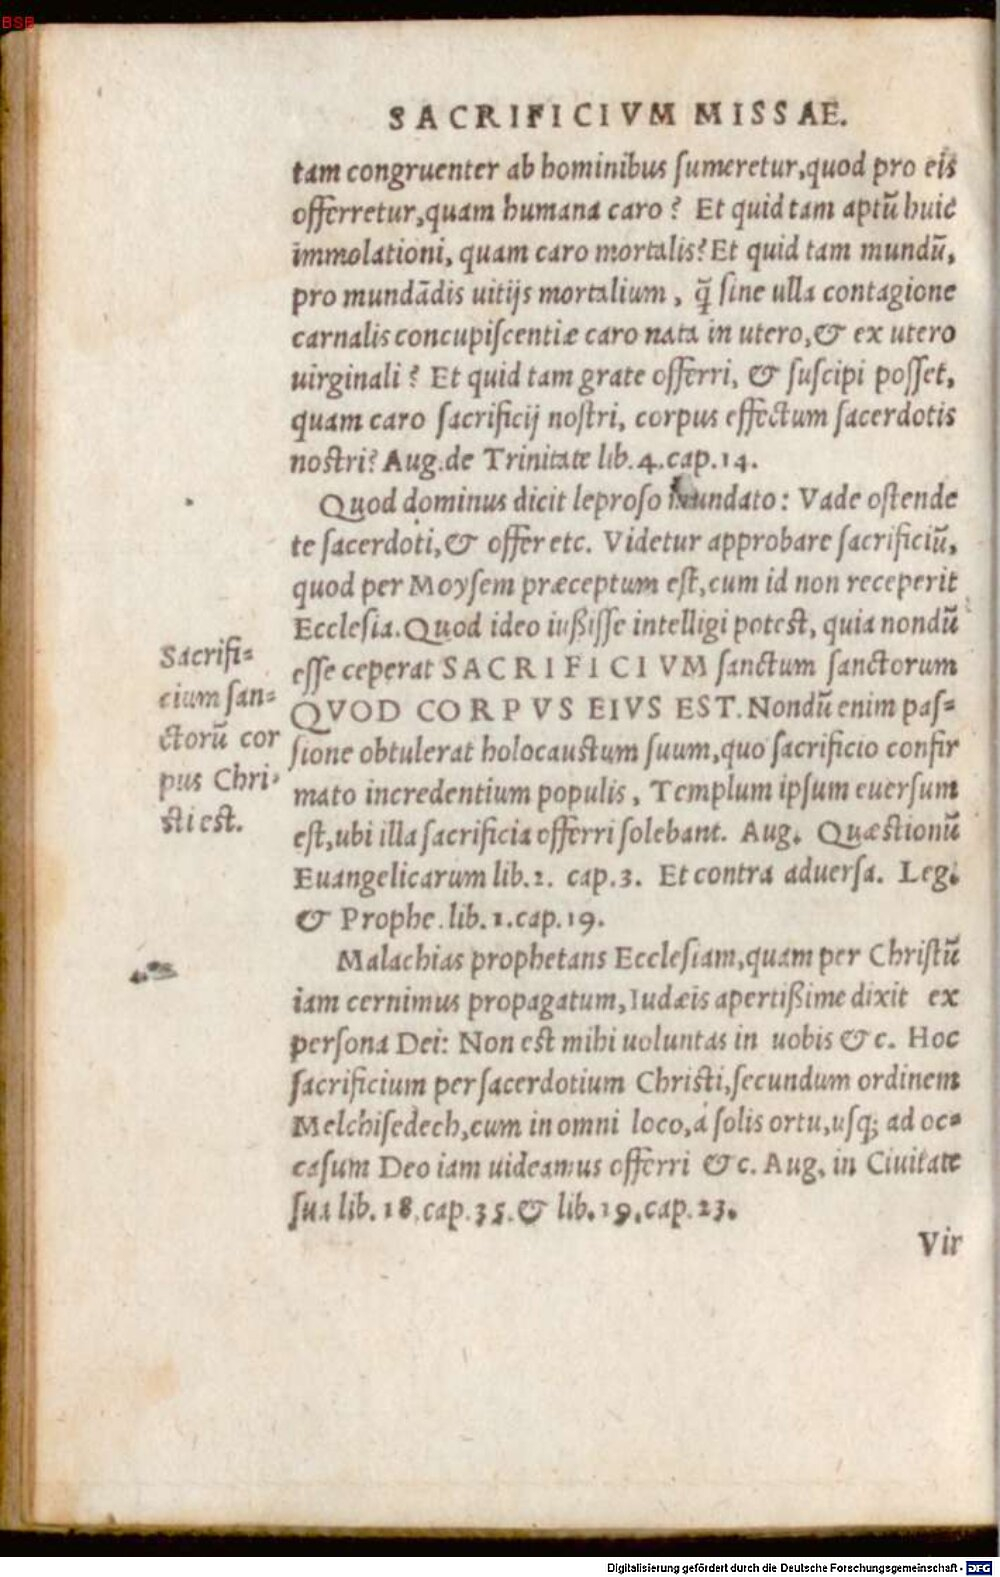 BSB
SACRIFICIVM MISSAE.
tam congruenter ab hominibus sumeretur, quod pro eis
offerretur, quam humana caro? Et quid tam aptũ huic
immolationi, quam caro mortalis? Et quid tam mundũ,
pro mundãdis uitijs mortalium, q̃ sine ulla contagione
carnalis concupiscentiæ caro nata in utero, & ex utero
uirginali? Et quid tam grate offerri, & suscipi posset,
quam caro sacrificij nostri, corpus effectum sacerdotis
nostri? Aug. de Trinitate lib. 4. cap. 14.
Quod dominus dicit leproso mundato: Vade ostende
te sacerdoti, & offer etc. Videtur approbare sacrificiũ,
quod per Moysem præceptum est, cum id non receperit
Ecclesia. Quod ideo iußisse intelligi potest, quia nondũ
esse ceperat SACRIFICIVM sanctum sanctorum
QVOD CORPVS EIVS EST. Nondũ enim pas=
sione obtulerat holocaustum suum, quo sacrificio confir
mato incredentium populis, Templum ipsum euersum
est, ubi illa sacrificia offerri solebant. Aug. Quæstionũ
Euangelicarum lib. 2. cap. 3. Et contra aduersa. Leg.
& Prophe. lib. 1. cap. 19.
Sacrifi=
cium san=
ctorũ cor
pus Chri=
sti est.
Malachias prophetans Ecclesiam, quam per Christũ
iam cernimus propagatum, Iudæis apertißime dixit ex
persona Dei: Non est mihi uoluntas in uobis &c. Hoc
sacrificium per sacerdotium Christi, secundum ordinem
Melchisedech, cum in omni loco, á solis ortu, usq; ad oc=
casum Deo iam uideamus offerri &c. Aug. in Ciuitate
sua lib. 18. cap. 35. & lib. 19. cap. 23.
Vir
Digitalisierung gefördert durch die Deutsche Forschungsgemeinschaft - DFG